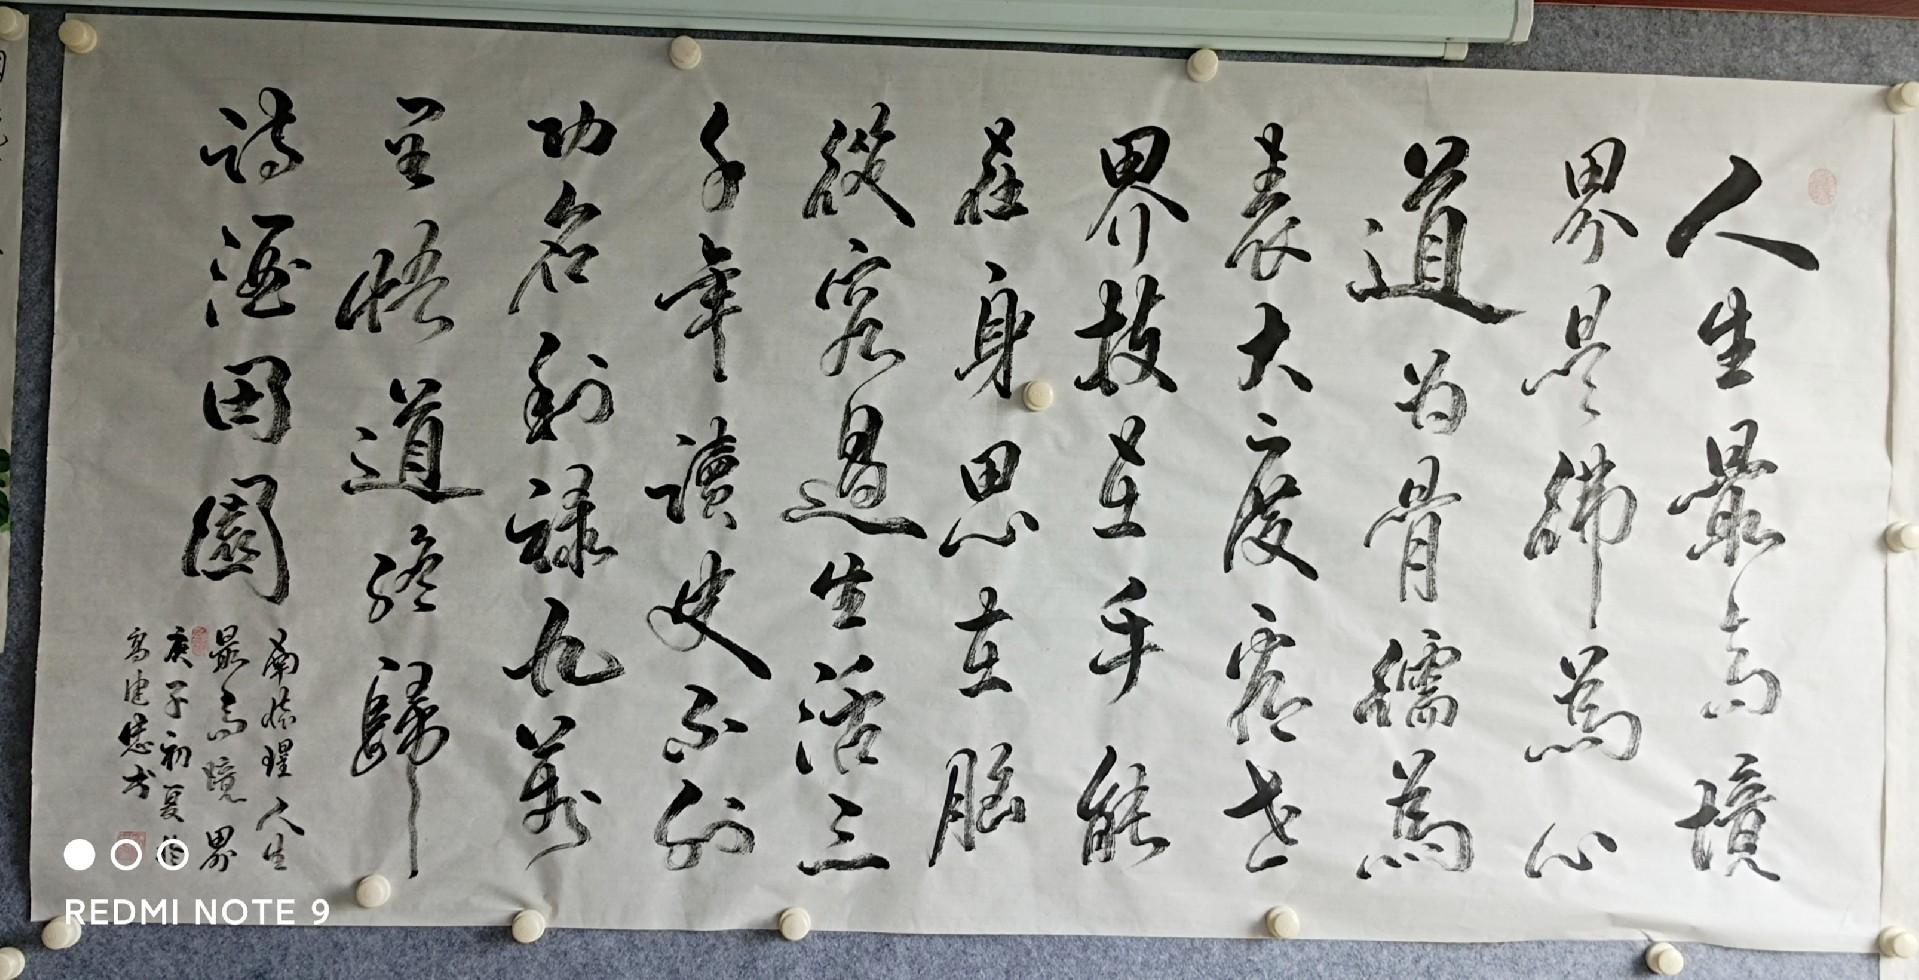 人生最高境
界是佛為心
道为骨儒為
表大度看世
界技在手能
在身思在腦
從容過生活三
千年讀史不外
功名利祿九萬
里悟道終歸
詩酒田園
南懷瑾人生
最高境界
庚子初夏
高建书
REDMI NOTE 9